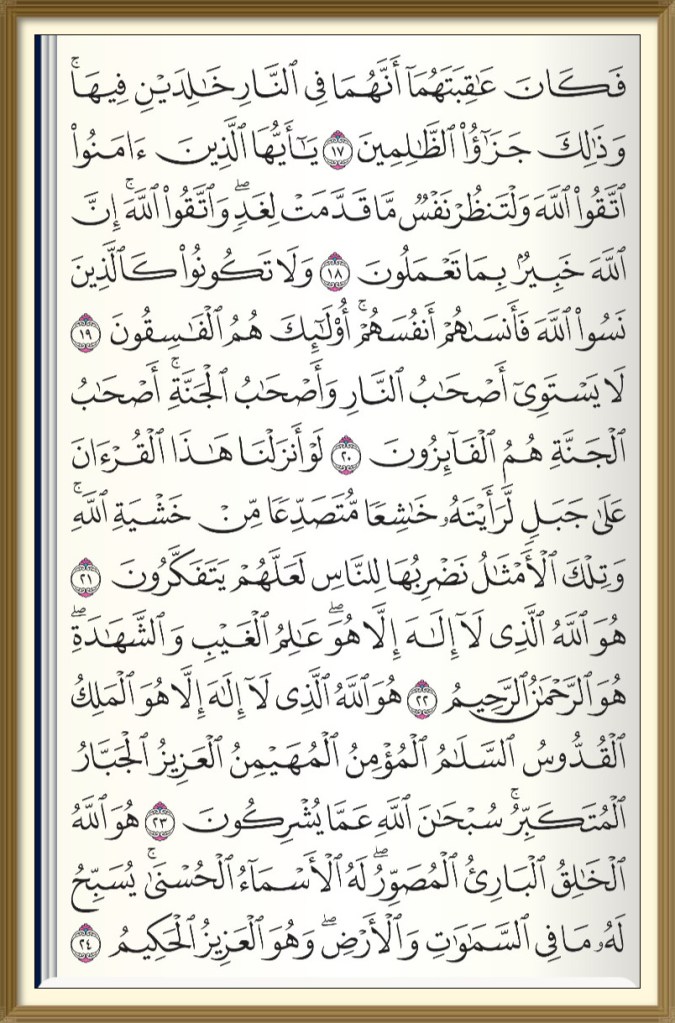 فَكَانَ عَٰقِبَتَهُمَآ أَنَّهُمَا فِى ٱلنَّارِ خَٰلِدَيْنِ فِيهَا ۚ
وَذَٰلِكَ جَزَٰٓؤُا۟ ٱلظَّٰلِمِينَ ١٧ يَٰٓأَيُّهَا ٱلَّذِينَ ءَامَنُوا۟
ٱتَّقُوا۟ ٱللَّهَ وَلْتَنظُرْ نَفْسٌ مَّا قَدَّمَتْ لِغَدٍ ۖ وَٱتَّقُوا۟ ٱللَّهَ ۚ إِنَّ
ٱللَّهَ خَبِيرٌۢ بِمَا تَعْمَلُونَ ١٨ وَلَا تَكُونُوا۟ كَٱلَّذِينَ
نَسُوا۟ ٱللَّهَ فَأَنسَىٰهُمْ أَنفُسَهُمْ ۚ أُو۟لَٰٓئِكَ هُمُ ٱلْفَٰسِقُونَ ١٩
لَا يَسْتَوِىٓ أَصْحَٰبُ ٱلنَّارِ وَأَصْحَٰبُ ٱلْجَنَّةِ ۚ أَصْحَٰبُ
ٱلْجَنَّةِ هُمُ ٱلْفَآئِزُونَ ٢٠ لَوْ أَنزَلْنَا هَٰذَا ٱلْقُرْءَانَ
عَلَىٰ جَبَلٍ لَّرَأَيْتَهُۥ خَٰشِعًا مُّتَصَدِّعًا مِّنْ خَشْيَةِ ٱللَّهِ ۚ
وَتِلْكَ ٱلْأَمْثَٰلُ نَضْرِبُهَا لِلنَّاسِ لَعَلَّهُمْ يَتَفَكَّرُونَ ٢١
هُوَ ٱللَّهُ ٱلَّذِى لَآ إِلَٰهَ إِلَّا هُوَ ۖ عَٰلِمُ ٱلْغَيْبِ وَٱلشَّهَٰدَةِ ۖ
هُوَ ٱلرَّحْمَٰنُ ٱلرَّحِيمُ ٢٢ هُوَ ٱللَّهُ ٱلَّذِى لَآ إِلَٰهَ إِلَّا هُوَ ٱلْمَلِكُ
ٱلْقُدُّوسُ ٱلسَّلَٰمُ ٱلْمُؤْمِنُ ٱلْمُهَيْمِنُ ٱلْعَزِيزُ ٱلْجَبَّارُ
ٱلْمُتَكَبِّرُ ۚ سُبْحَٰنَ ٱللَّهِ عَمَّا يُشْرِكُونَ ٢٣ هُوَ ٱللَّهُ
ٱلْخَٰلِقُ ٱلْبَارِئُ ٱلْمُصَوِّرُ ۖ لَهُ ٱلْأَسْمَآءُ ٱلْحُسْنَىٰ ۚ يُسَبِّحُ
لَهُۥ مَا فِى ٱلسَّمَٰوَٰتِ وَٱلْأَرْضِ ۖ وَهُوَ ٱلْعَزِيزُ ٱلْحَكِيمُ ٢٤